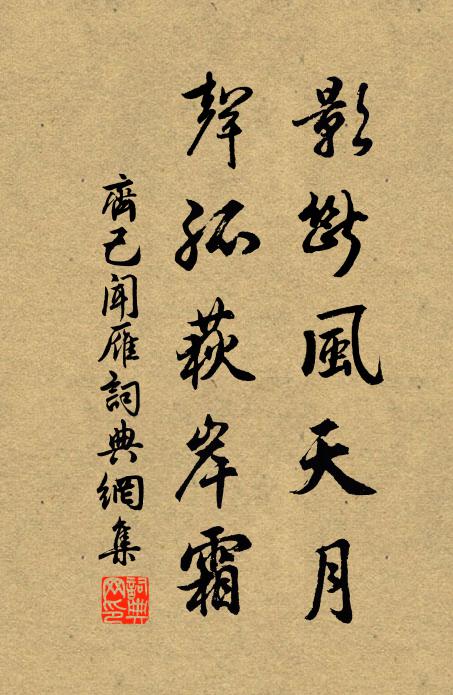 影斷風天月
聲孤荻岸霜
齊己聞雁詞典網集
詞典網印